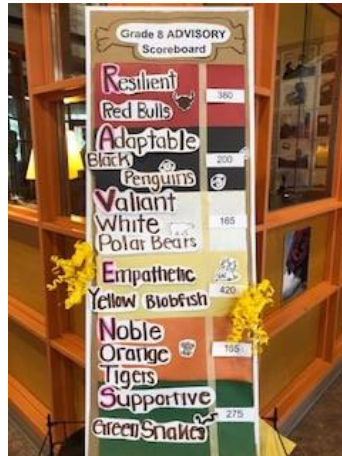 Grade 8 ADVISORY
Scoreboard
Resilient
Red Bulls
380
Adaptable
Black
Penguins
200
Valiant
White
Polar Bears
165
Empathetic
Yellow Blobfish
420
Noble
Orange
Tigers
195
Supportive
Green Snakes
275